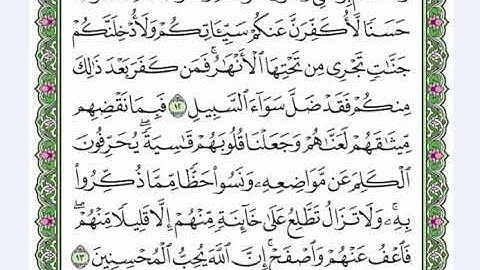 حَسَنًا لَّأُكَفِّرَنَّ عَنكُمْ سَيِّـَٔاتِكُمْ وَلَأُدْخِلَنَّكُمْ
جَنَّٰتٍ تَجْرِى مِن تَحْتِهَا ٱلْأَنْهَٰرُ ۚ فَمَن كَفَرَ بَعْدَ ذَٰلِكَ
مِنكُمْ فَقَدْ ضَلَّ سَوَآءَ ٱلسَّبِيلِ ١٢ فَبِمَا نَقْضِهِم
مِّيثَٰقَهُمْ لَعَنَّٰهُمْ وَجَعَلْنَا قُلُوبَهُمْ قَٰسِيَةً ۖ يُحَرِّفُونَ
ٱلْكَلِمَ عَن مَّوَاضِعِهِۦ ۙ وَنَسُوا۟ حَظًّا مِّمَّا ذُكِّرُوا۟
بِهِۦ ۚ وَلَا تَزَالُ تَطَّلِعُ عَلَىٰ خَآئِنَةٍ مِّنْهُمْ إِلَّا قَلِيلًا مِّنْهُمْ ۖ
فَٱعْفُ عَنْهُمْ وَٱصْفَحْ ۚ إِنَّ ٱللَّهَ يُحِبُّ ٱلْمُحْسِنِينَ ١٣